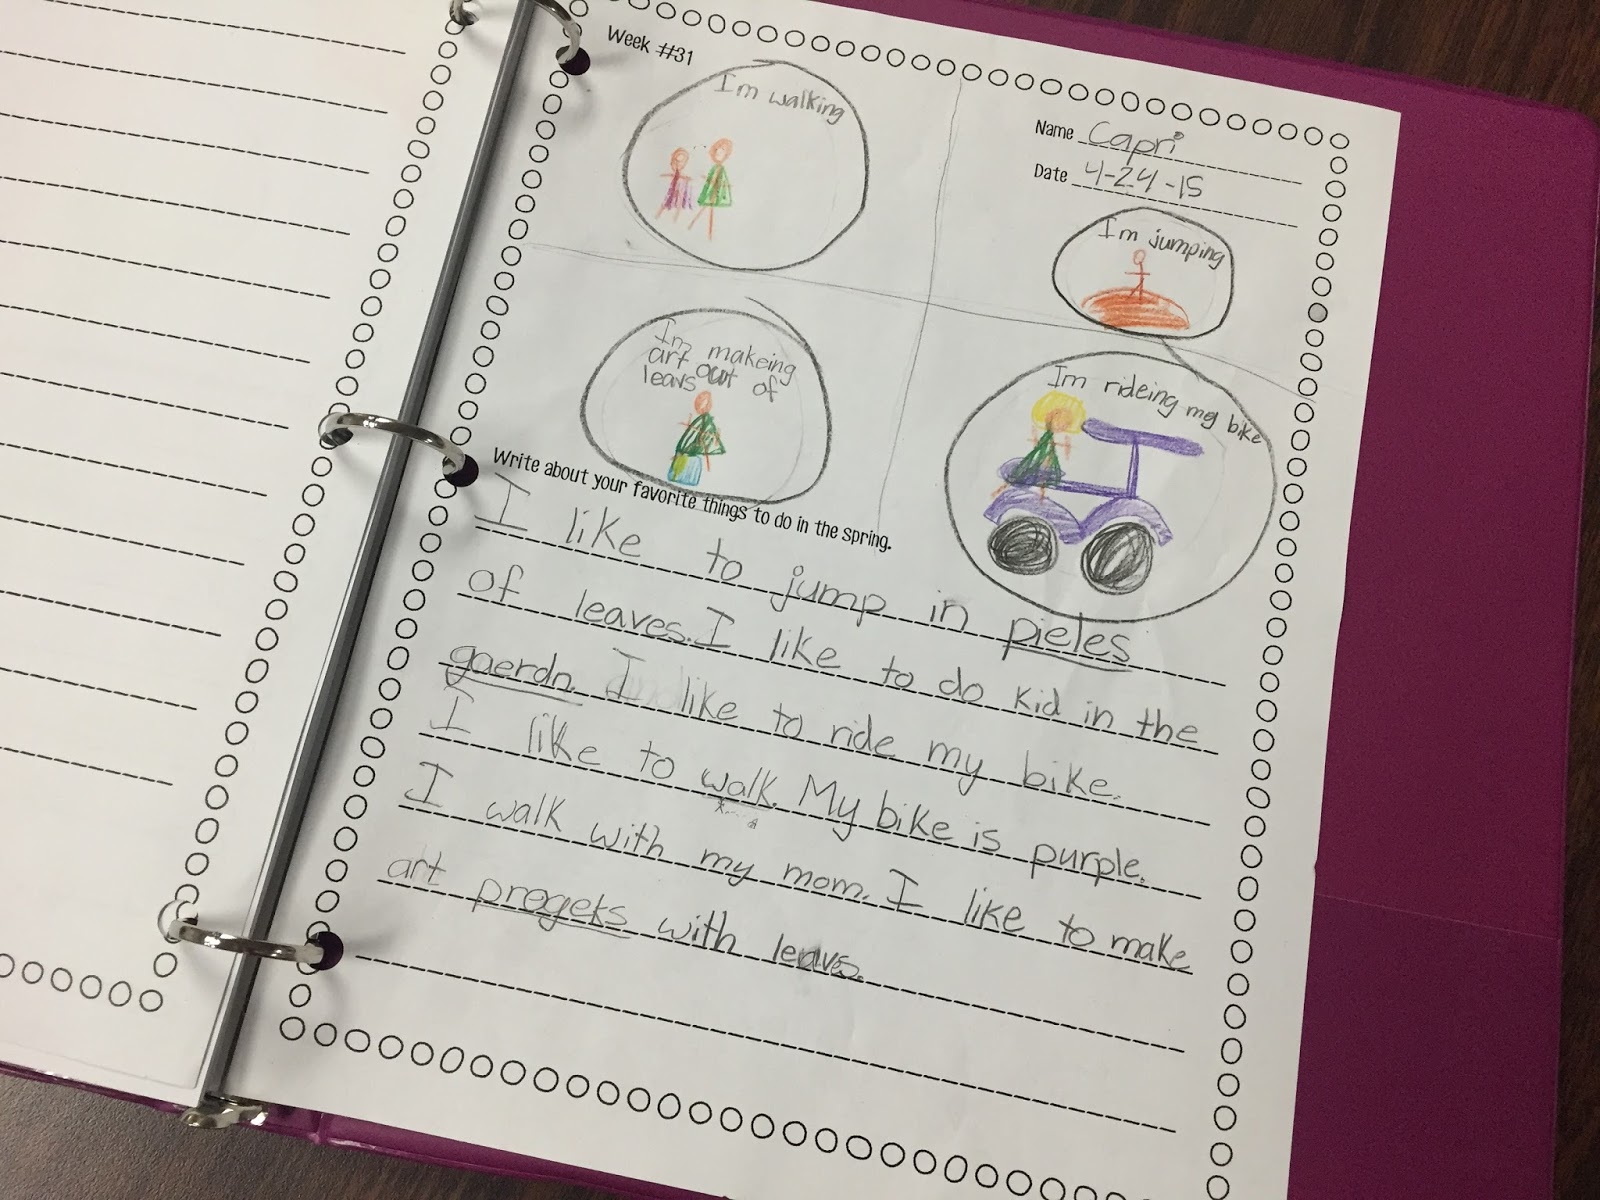 Week #31
I'm walking
Name Capri
Date 4-24-15
I'm jumping
I'm makeing
art out of
leavs
I'm rideing my bike
Write about your favorite things to do in the spring.
I like to jump in pieles
of leaves. I like to do kid in the
gaerdn. I like to ride my bike.
I like to walk. My bike is purple.
I walk with my mom. I like to make
art progeks with leaves.